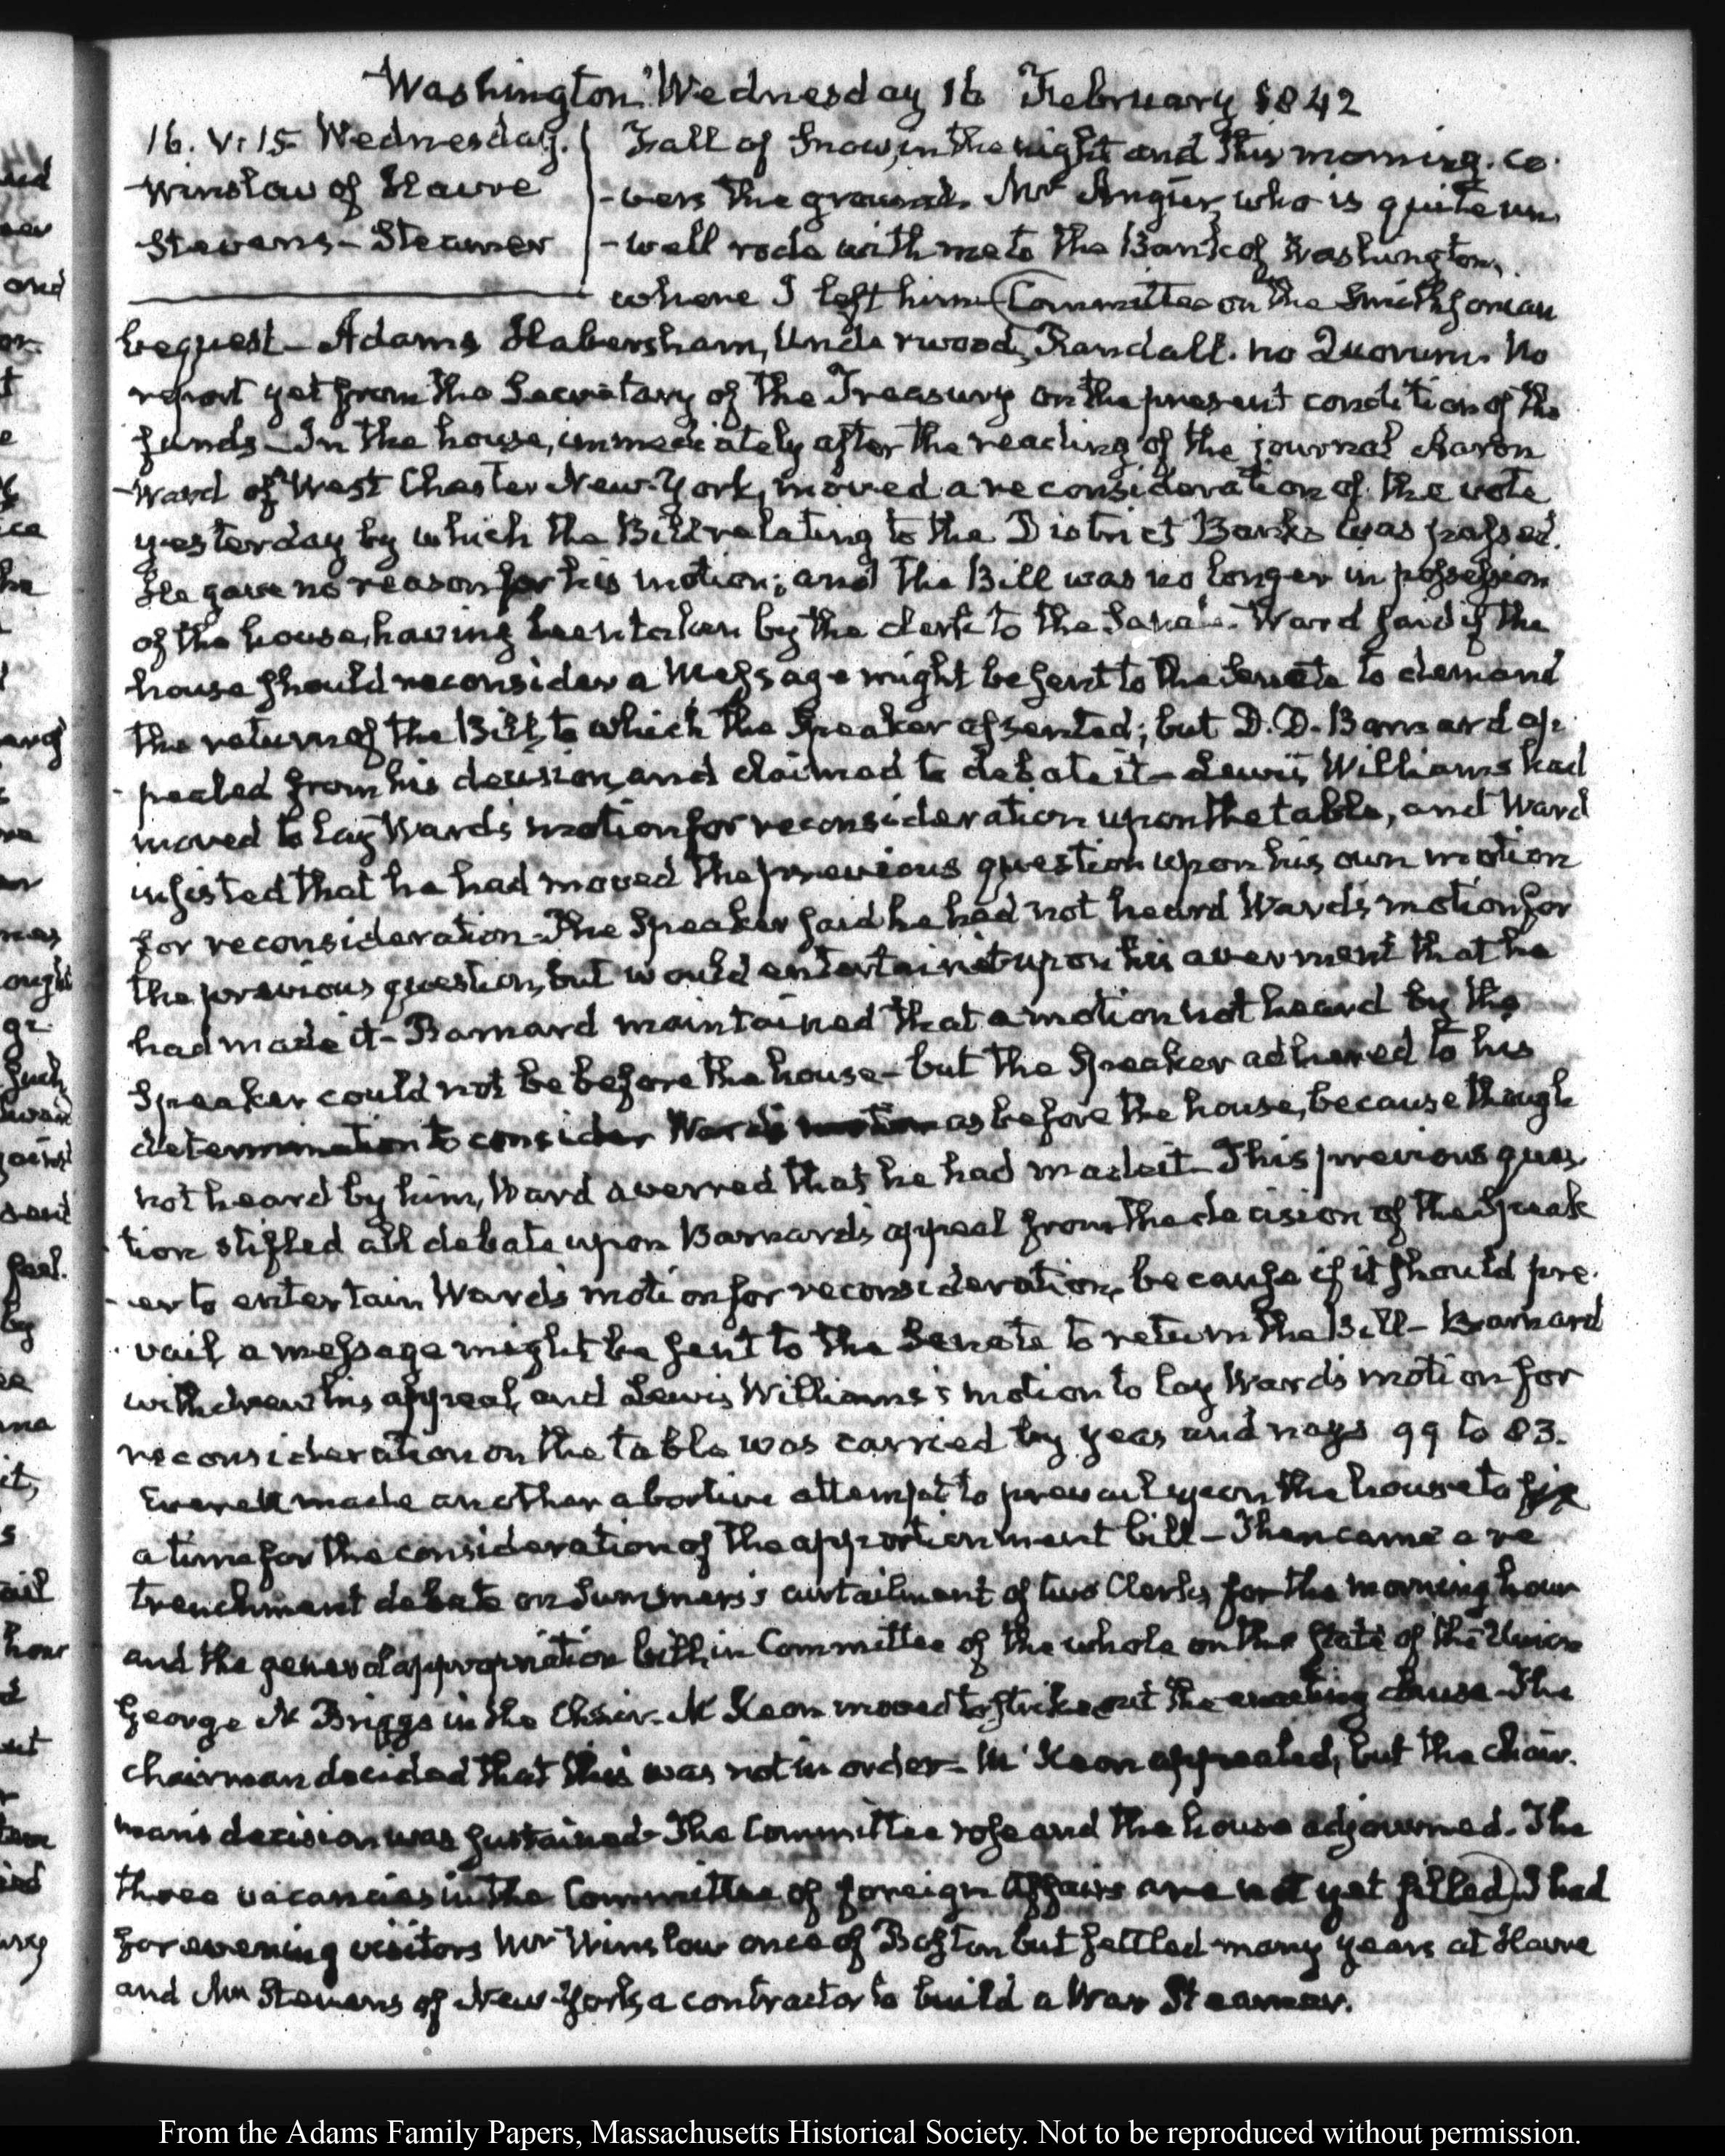 Washington. Wednesday 16 February 1842
16. V:15 Wednesday.
Winslow of Havre
Stevens – Steamer
Fall of Snow, in the night and this morning. co-
-vers the ground. Mr Angier, who is quite un
-well rode with me to the Bank of Washington,
where I left him (Committee on the Smithsonian
bequest – Adams Habersham, Underwood, Randall. no Quorum. No
report yet from the Secretary of the Treasury on the present condition of the
funds – In the house, immediately after the reading of the journal Aaron
Ward of West Chester New-York, moved a reconsideration of the vote
yesterday by which the Bill relating to the District Banks was passed.
He gave no reason for his motion; and the Bill was no longer in possession
of the house, having been taken by the clerk to the Senate. Ward said if the
house should reconsider a Message might be sent to the Senate to demand
the return of the Bill, to which the Speaker assented; but D. D. Barnard ap-
pealed from his decision, and claimed to debate it – Lewis Williams had
moved to lay Ward's motion for reconsideration upon the table, and Ward
insisted that he had moved the previous question upon his own motion
for reconsideration – The Speaker said he had not heard Ward's motion for
the previous question, but would entertain it upon his averment that he
had made it – Barnard maintained that a motion not heard by the
Speaker could not be before the house – but the Speaker adhered to his
determination to consider Ward's motion as before the house, because though
not heard by him, Ward averred that he had made it – This previous ques-
tion stifled all debate upon Barnard's appeal from the decision of the Speak
-er to entertain Ward's motion for reconsideration, because if it should pre-
vail a message might be sent to the Senate to return the Bill – Barnard
withdrew his appeal, and Lewis Williams's motion to lay Ward's motion for
reconsideration on the table was carried by yeas and nays 99 to 83.
Everett made another abortive attempt to prevail upon the house to fix
a time for the consideration of the apportionment bill – Then came a re
trenchment debate on Summers's curtailment of two Clerks, for the morning hour
and the general appropriation bill, in Committee of the whole on the state of the Union
George N Briggs in the Chair. McKeon moved to strike out the enacting clause – The
chairman decided that this was not in order – McKeon appealed, but the chair-
man's decision was sustained – The Committee rose and the house adjourned. The
three vacancies in the Committee of foreign Affairs are not yet filled) I had
for evening visitors Mr Winslow once of Boston but settled many years at Havre
and Mr Stevens of New-York, a contractor to build a War Steamer.
From the Adams Family Papers, Massachusetts Historical Society. Not to be reproduced without permission.